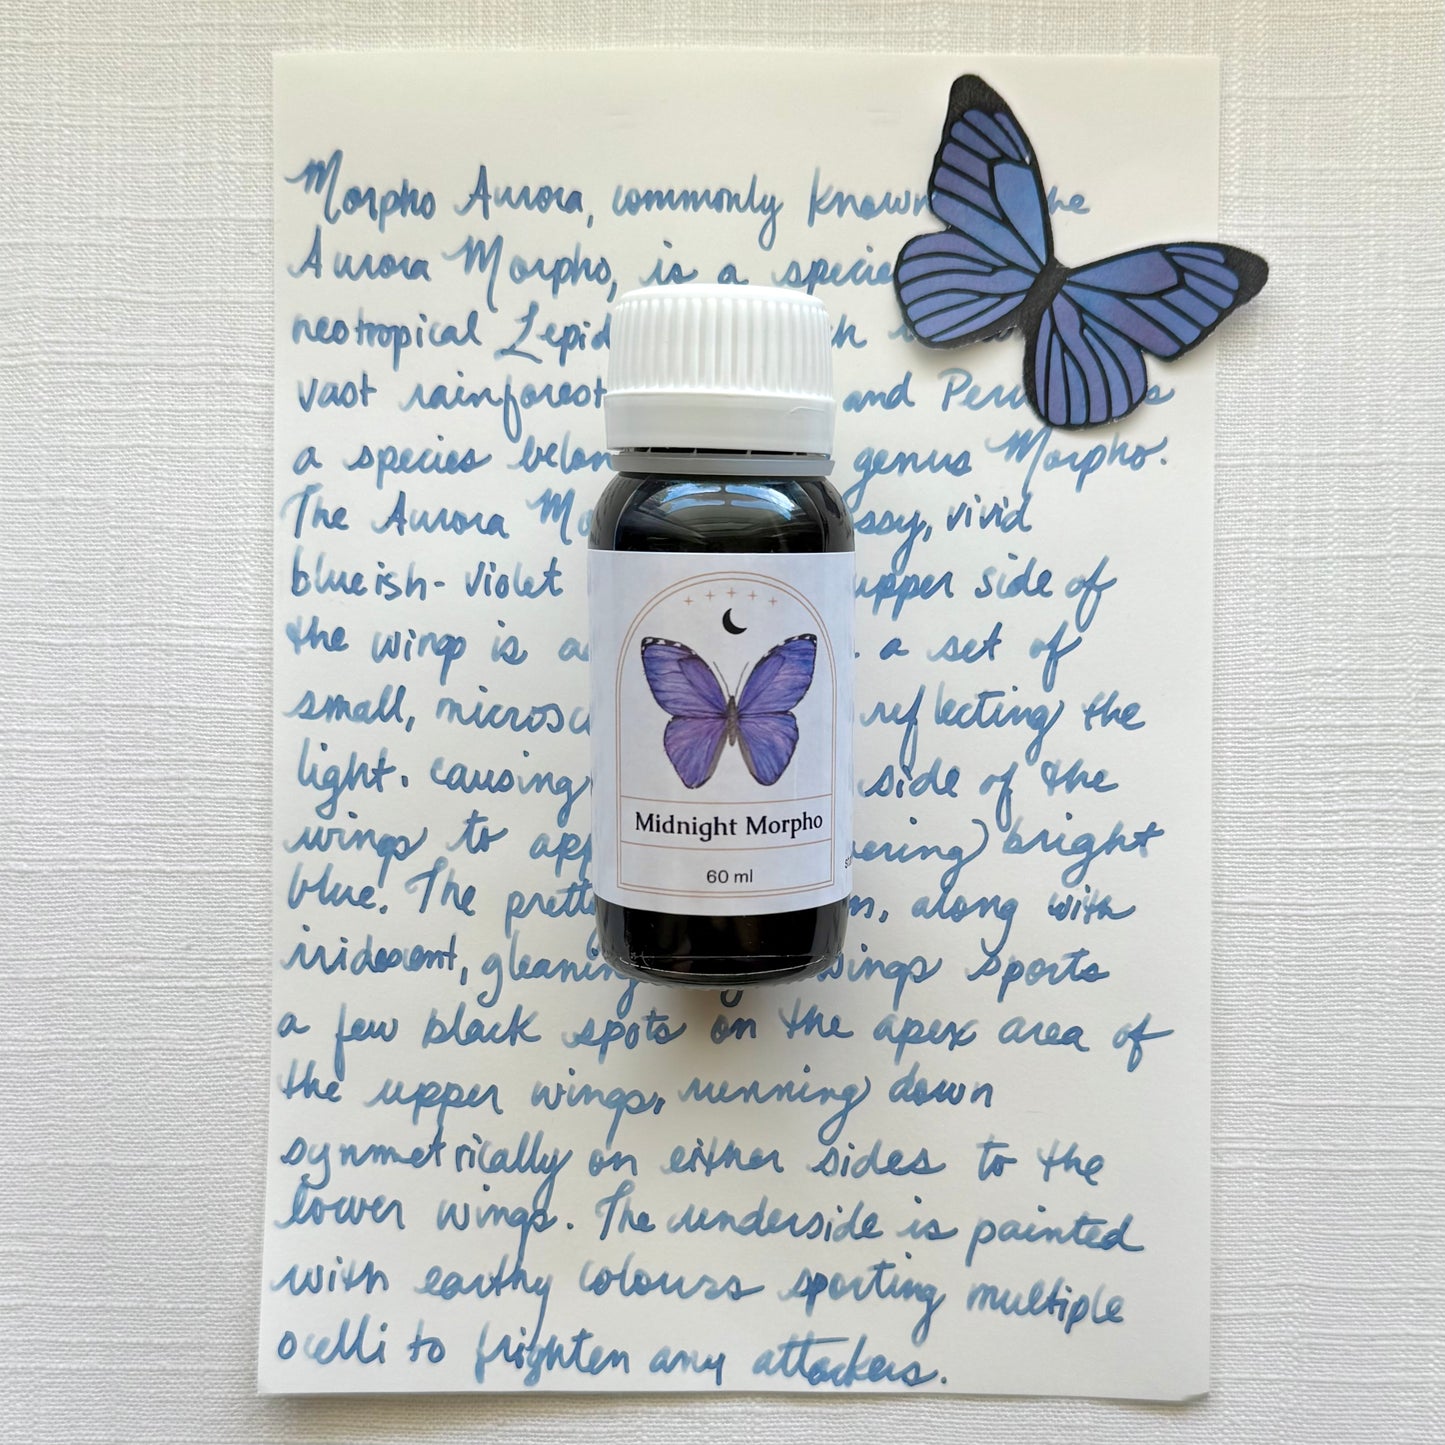 Morpho Aurora, commonly known he
Aurora Morpho, is a specie
neotropical Lepid
vast rainforest and Peru s
a species belon genus Morpho.
The Aurora Mo ssy, vivid
blueish-violet upper side of
the wings is a set of
small, microsc reflecting the
light. causing side of the
wings to app ering bright
blue. The pretty along with
iridescent, gleaming wings sports
a few black spots on the apex area of
the upper wings, running down
symmetrically on either sides to the
lower wings. The underside is painted
with earthy colours sporting multiple
ocelli to frighten any attackers.
Midnight Morpho
60 ml